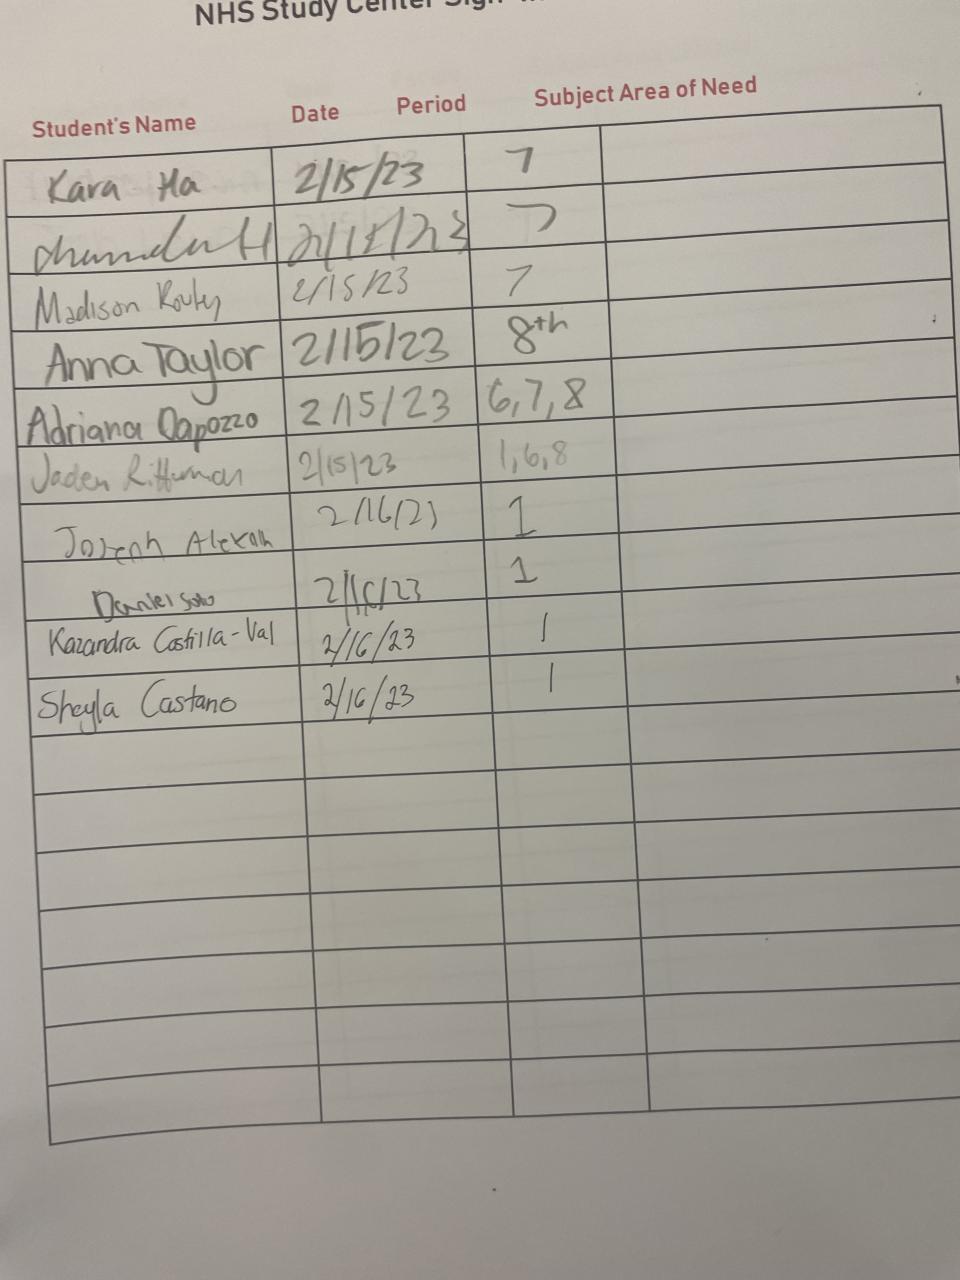 NHS Study Center Sign
Student's Name Date Period Subject Area of Need
Kara Ha 2/15/23 7
2/15/23 7
Madison 2/15/23 7
Anna Taylor 2/15/23 8th
Adriana Dapozzo 2/15/23 6,7,8
Jaden 2/15/23 1,6,8
Joseph 2/16/23 1
Daniel Soto 2/16/23 1
Kazandra Costilla-Val 2/16/23 1
Sheyla Castano 2/16/23 1